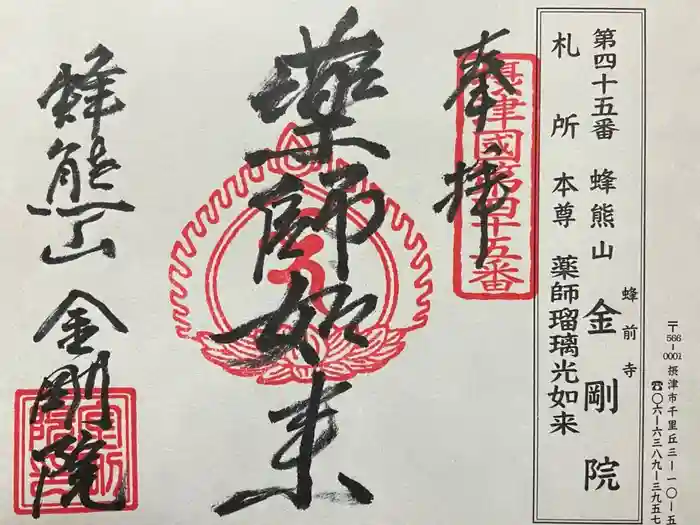 〒566-0001 摂津市千里丘三ー一〇ー五
☎〇六ー六三八九ー三九五七
第四十五番 蜂熊山 蜂前寺 金剛院
札所本尊 薬師瑠璃光如来
奉拝
摂津國第四十五番
薬師如来
蜂熊山 金剛院